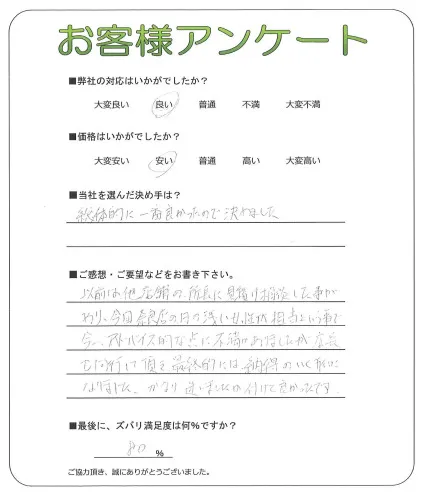 お客様アンケート
■弊社の対応はいかがでしたか?
大変良い 良い 普通 不満 大変不満
■価格はいかがでしたか?
大変安い 安い 普通 高い 大変高い
■当社を選んだ決め手は?
総体的に一番良かったので決めました
■ご感想・ご要望などをお書き下さい。
以前は他店舗の所長に見積り相談した事が
あり、今回奈良店の日の浅い女性が担当という事で
今一、アドバイス的な点に不満がありましたが店長
最終的には納得のいく
かなり迷いましたが付けて良かったです。
■最後に、ズバリ満足度は何%ですか?
80 %
ご協力頂き、誠にありがとうございました。